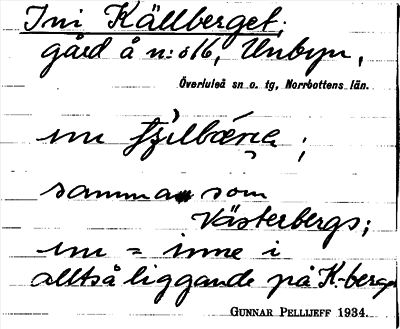 Ini Källberget;
gård å n:o 16, Unbyn,
Överluleå sn o. tg, Norrbottens län.
samma som
Västerbergs;
ini = inne i
alltså liggande på K-berget
GUNNAR PELLIJEFF 1934.